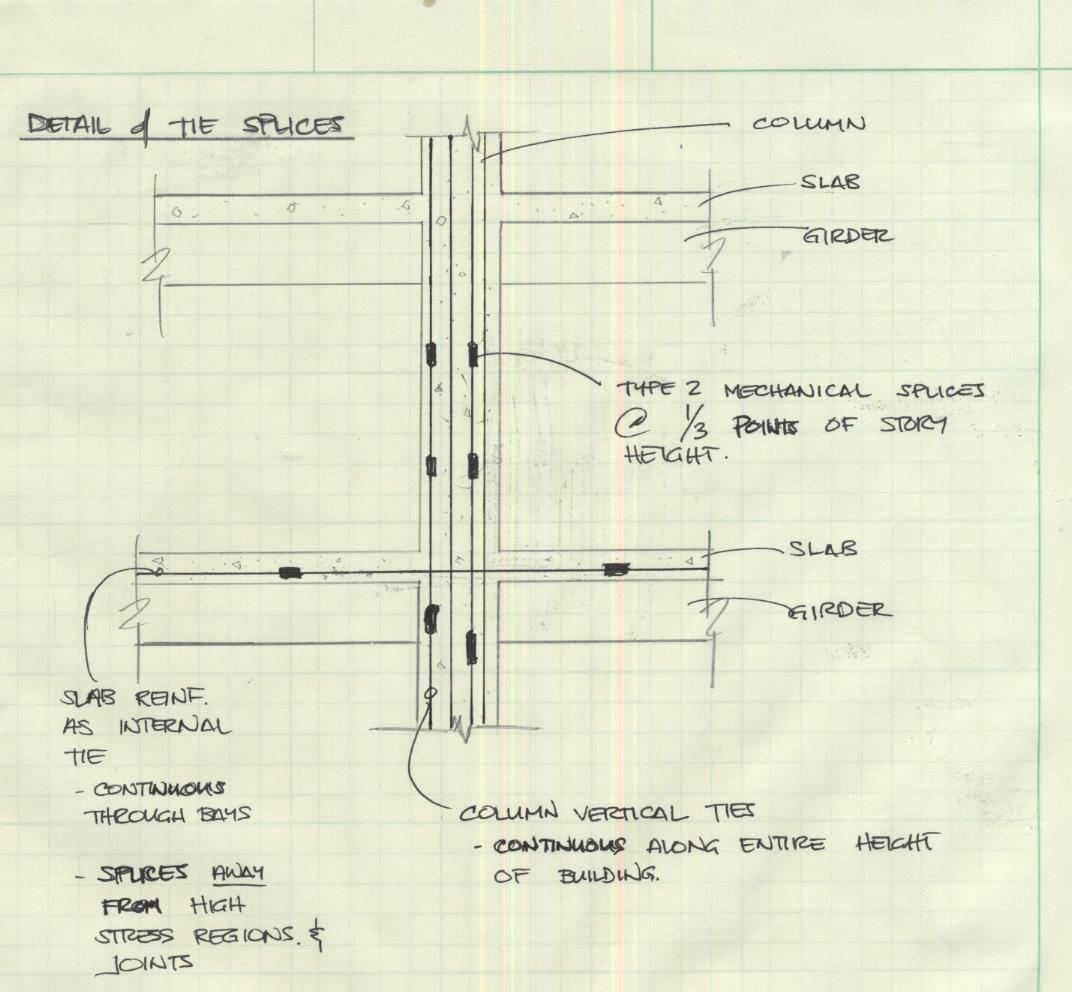 DETAIL of TIE SPLICES
COLUMN
SLAB
GIRDER
TYPE 2 MECHANICAL SPLICES
@ 1/3 POINTS OF STORY
HEIGHT.
SLAB
GIRDER
SLAB REINF.
AS INTERNAL
TIE
- CONTINUOUS
THROUGH BAYS
- SPLICES AWAY
FROM HIGH
STRESS REGIONS. &
JOINTS
COLUMN VERTICAL TIES
- CONTINUOUS ALONG ENTIRE HEIGHT
OF BUILDING.